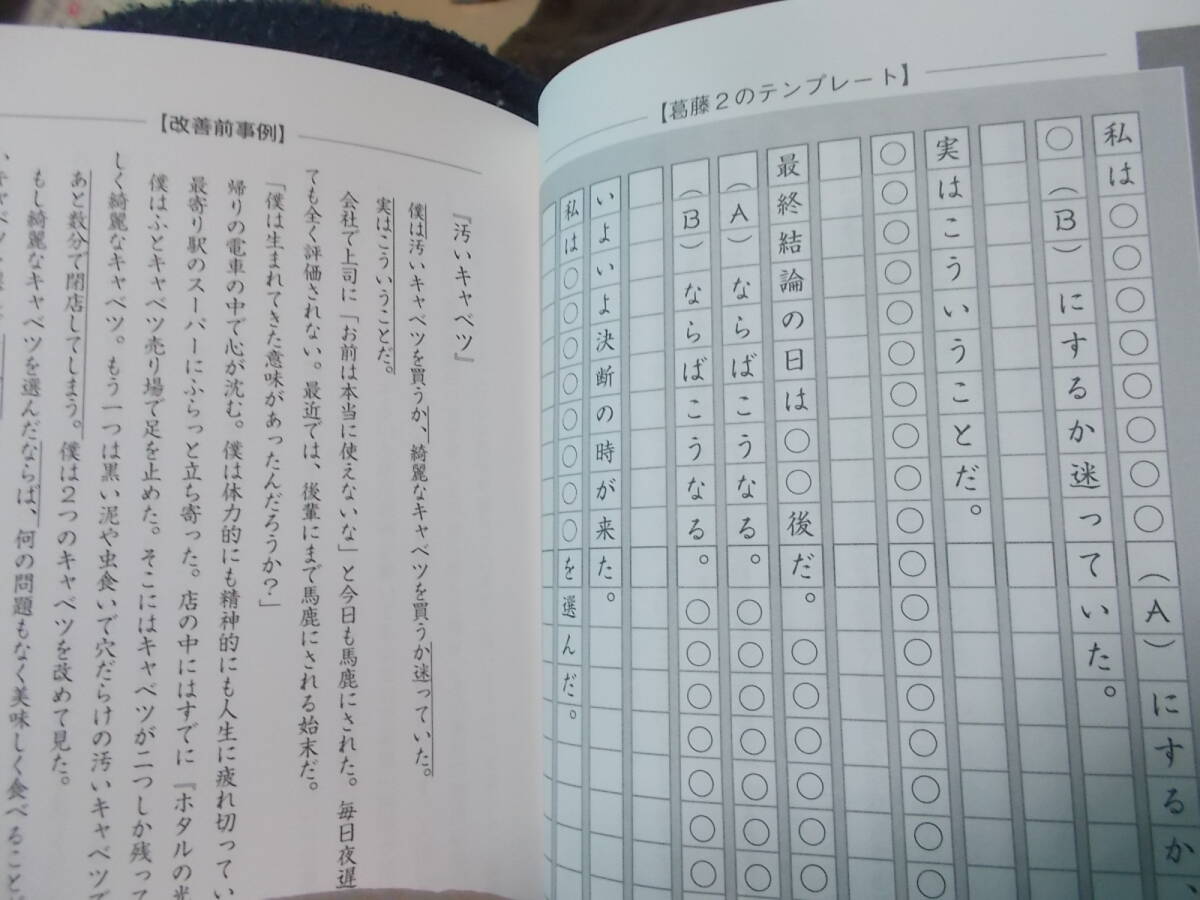 【葛藤２のテンプレート】
私は○○○○○○○（Ａ）にするか、
○（Ｂ）にするか迷っていた。
実はこういうことだ。
○○○○○○○○○○○○○○○○
最終結論の日は○○後だ。○○○○○
（Ａ）ならばこうなる。○○○○○○
（Ｂ）ならばこうなる。○○○○○○○
いよいよ決断の時が来た。
私は○○○○○○○を選んだ。
【改善前事例】
『汚いキャベツ』
僕は汚いキャベツを買うか、綺麗なキャベツを買うか迷っていた。
実はこういうことだ。
会社で上司に「お前は本当に使えないな」と今日も馬鹿にされた。毎日夜遅
ても全く評価されない。最近では、後輩にまで馬鹿にされる始末だ。
「僕は生まれてきた意味があったんだろうか？」
帰りの電車の中で心が沈む。僕は体力的にも精神的にも人生に疲れ切ってい
最寄り駅のスーパーにふらっと立ち寄った。店の中にはすでに『ホタルの光
僕はふとキャベツ売り場で足を止めた。そこにはキャベツが二つしか残って
しく綺麗なキャベツ。もう一つは黒い泥や虫食いで穴だらけの汚いキャベツで
あと数分で閉店してしまう。僕は２つのキャベツを改めて見た。
もし綺麗なキャベツを選んだならば、何の問題もなく美味しく食べること